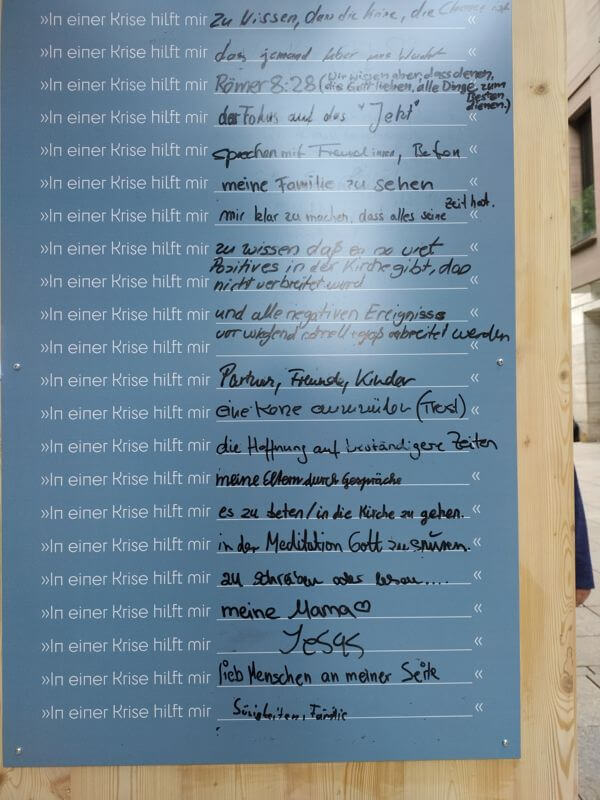 »In einer Krise hilft mir zu wissen, dass die Krise, die Chance ist
»In einer Krise hilft mir dass jemand über uns Wacht «
»In einer Krise hilft mir Römer 8:28 (Wir wissen aber, dass denen,
die Gott lieben, alle Dinge, zum
Besten
dienen.)
»In einer Krise hilft mir der Fokus auf das "Jetzt" «
»In einer Krise hilft mir sprechen mit Freund innen, «
»In einer Krise hilft mir meine Familie zu sehen «
»In einer Krise hilft mir mir klar zu machen, dass alles seine Zeit hat. «
»In einer Krise hilft mir zu wissen daß es so viel «
»In einer Krise hilft mir Positives in der Kirche gibt, das
nicht verbreitet wird «
»In einer Krise hilft mir und alle negativen Ereignisse «
»In einer Krise hilft mir vorwiegend schnell + groß verbreitet werden «
»In einer Krise hilft mir Partner, Freunde, Kinder «
»In einer Krise hilft mir eine Kerze anzünden (Trost) «
»In einer Krise hilft mir die Hoffnung auf beständigere Zeiten
»In einer Krise hilft mir meine Eltern durch Gespräche «
»In einer Krise hilft mir es zu beten/in die Kirche zu gehen. «
»In einer Krise hilft mir in der Meditation Gott zu spüren. «
»In einer Krise hilft mir zu schreiben oder lesen.... «
»In einer Krise hilft mir meine Mama♡ «
»In einer Krise hilft mir JESUS «
»In einer Krise hilft mir lieb Menschen an meiner Seite «
»In einer Krise hilft mir Süsigkeiten, Familie «